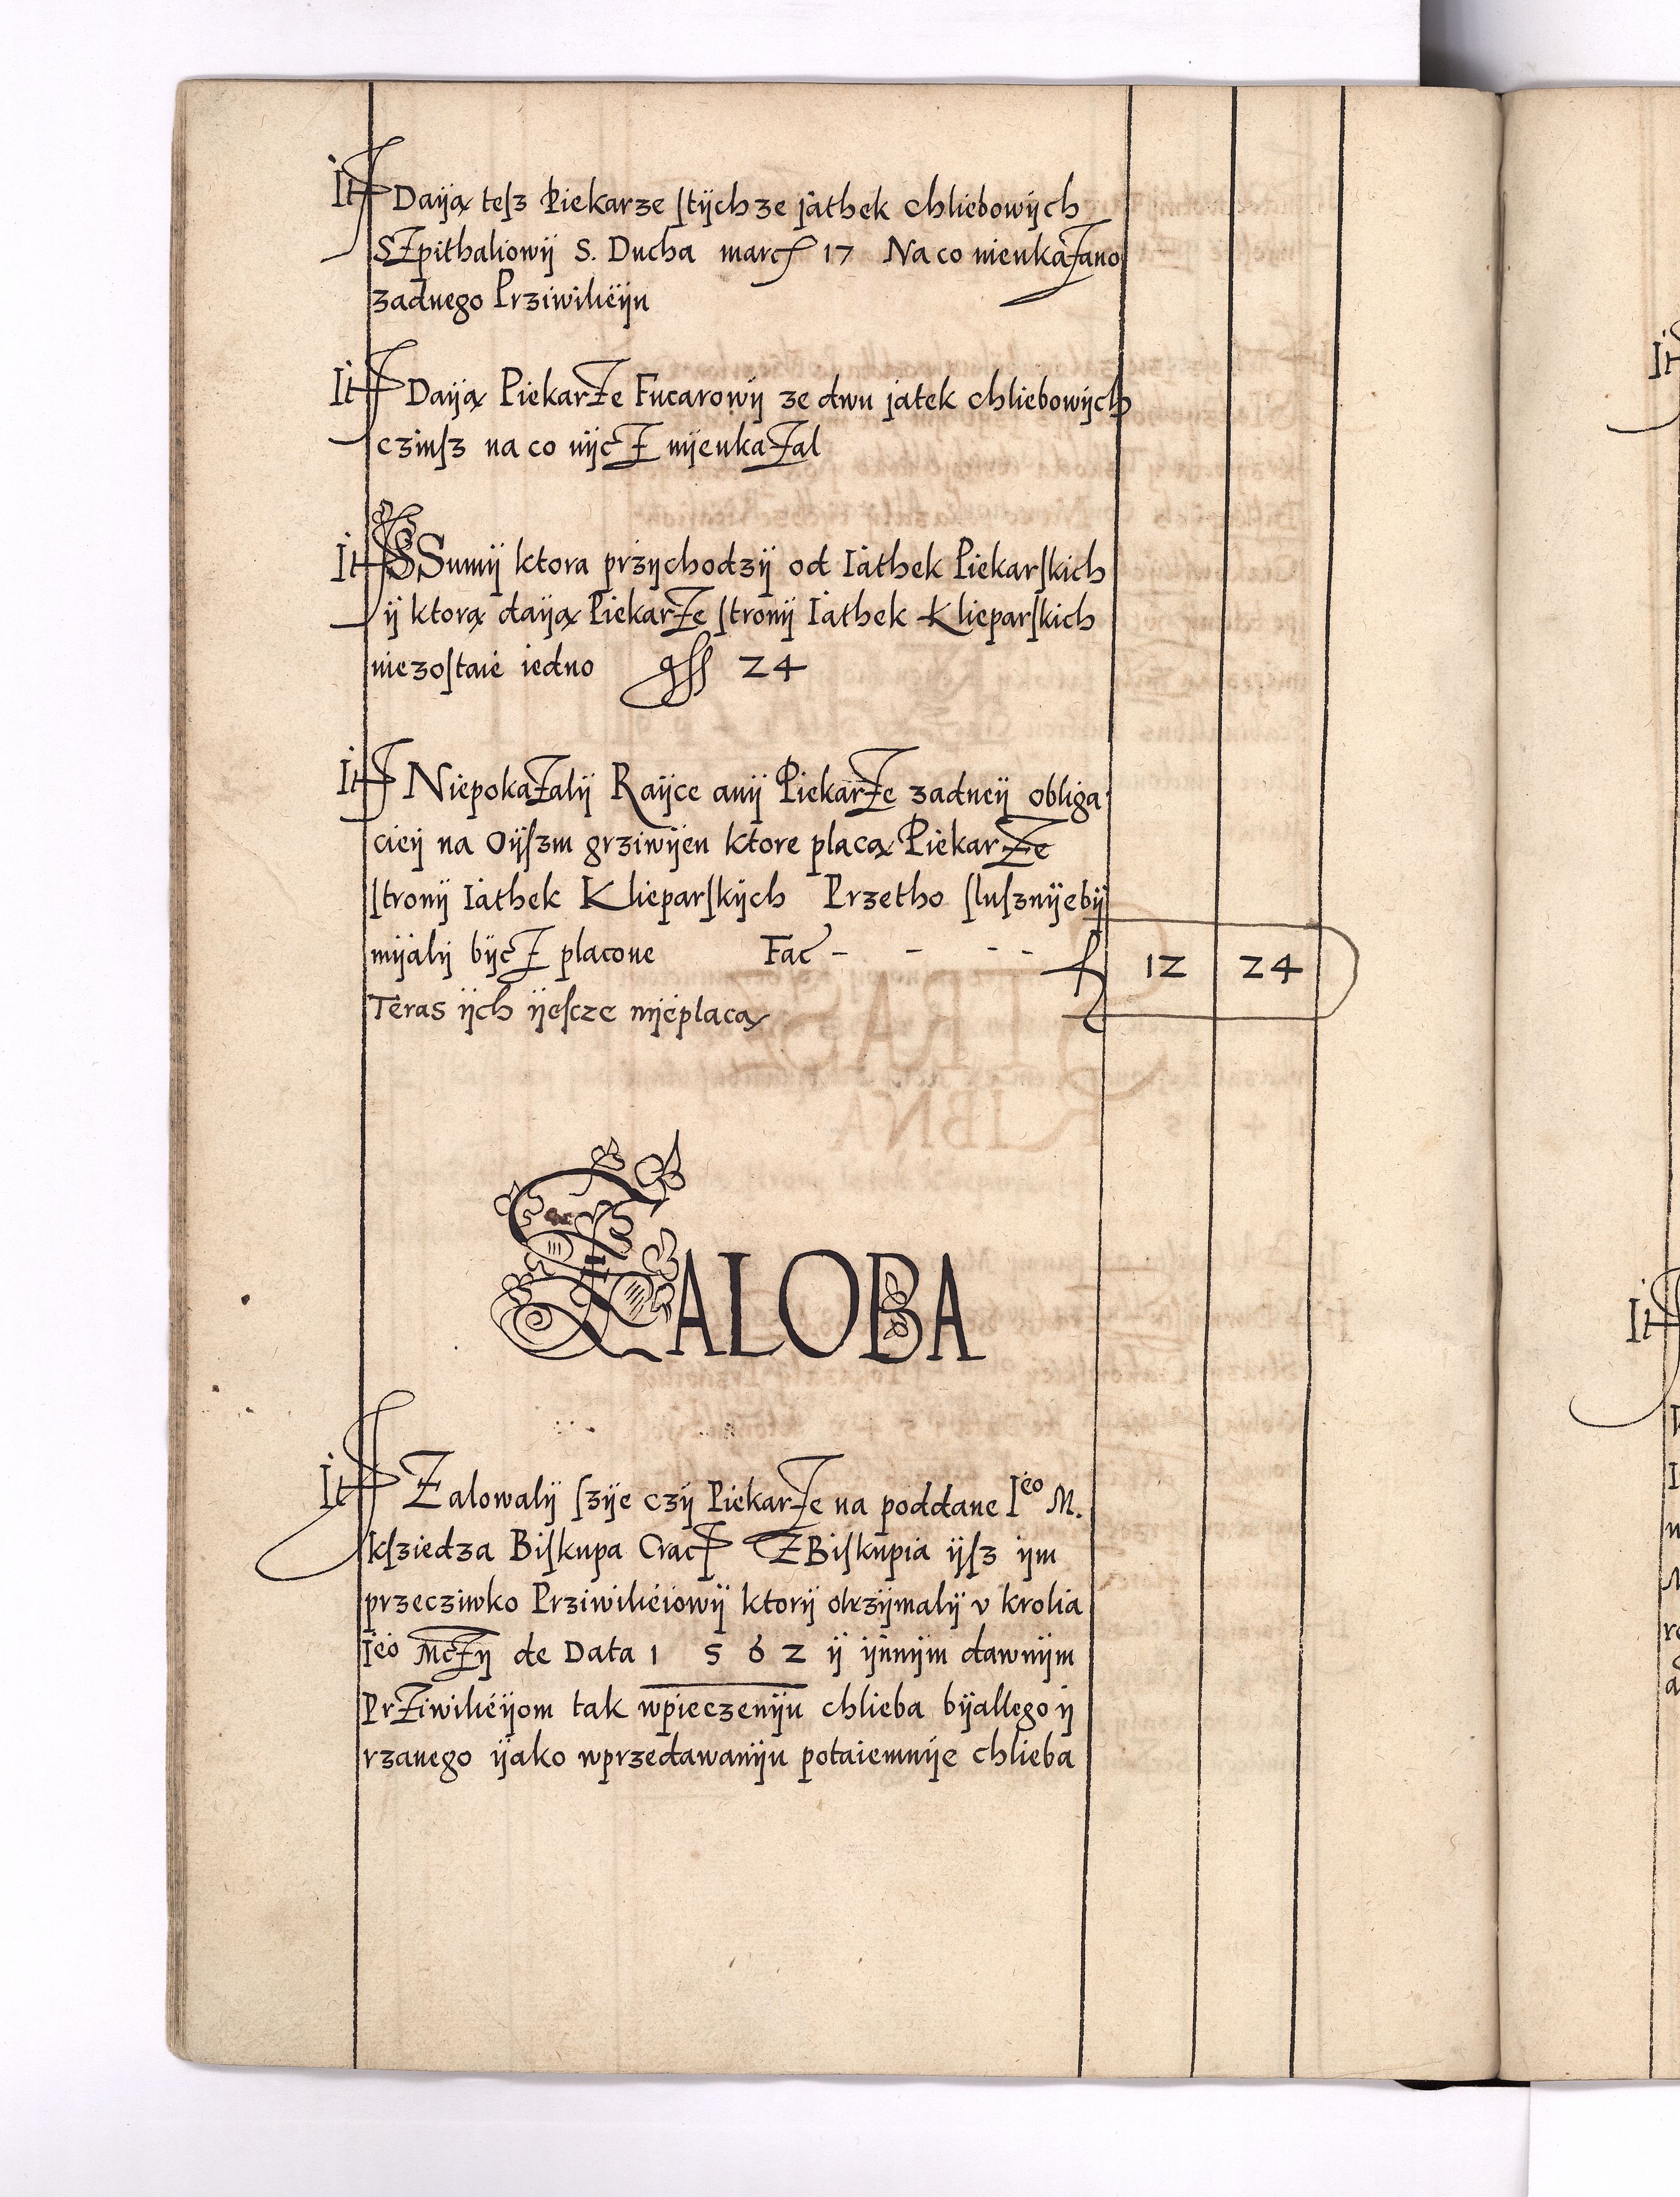 It Dayą tesz Piekarze stychze jathek chliebowych
SZpithaliowij S. Ducha marc 17 Na co nieukaZano
zadnego Prziwilieyu
It Dayą PiekarZe Fucarowij ze dwu jatek chliebowych
czinsz na co nijcZ nijeukaZal
It SSumij ktora przychodzij od Iathek Piekarskich
ij ktorą dayą PiekarZe stronij Iathek Klieparskich
niezostaie iedno gss 24
It NiepokaZalij Rayce anij PiekarZe zadneij obliga
cieij na Oijszm grziwijen ktore placą PiekarZe
stronij Iathek Klieparskijch Przetho slusznijebij
mijalij bijcZ placone Fac - - - - f 12 24
Teras ijch ijescze nijeplacą
ZALOBA
It Zalowalij szije czij PiekarZe na poddane Ieo M.
kssziedza Biskupa Crac Z Biskupia ijsz ijm
przecziwko Prziwilieiowij ktorij otrzijmalij v krolia
Ieo McZij de Data 1 5 6 2 ij ijnnijm dawnijm
PrZiwilieijom tak wpieczeniju chlieba bijallego ij
rzanego ijako wprzedawaniju potaiemnije chlieba